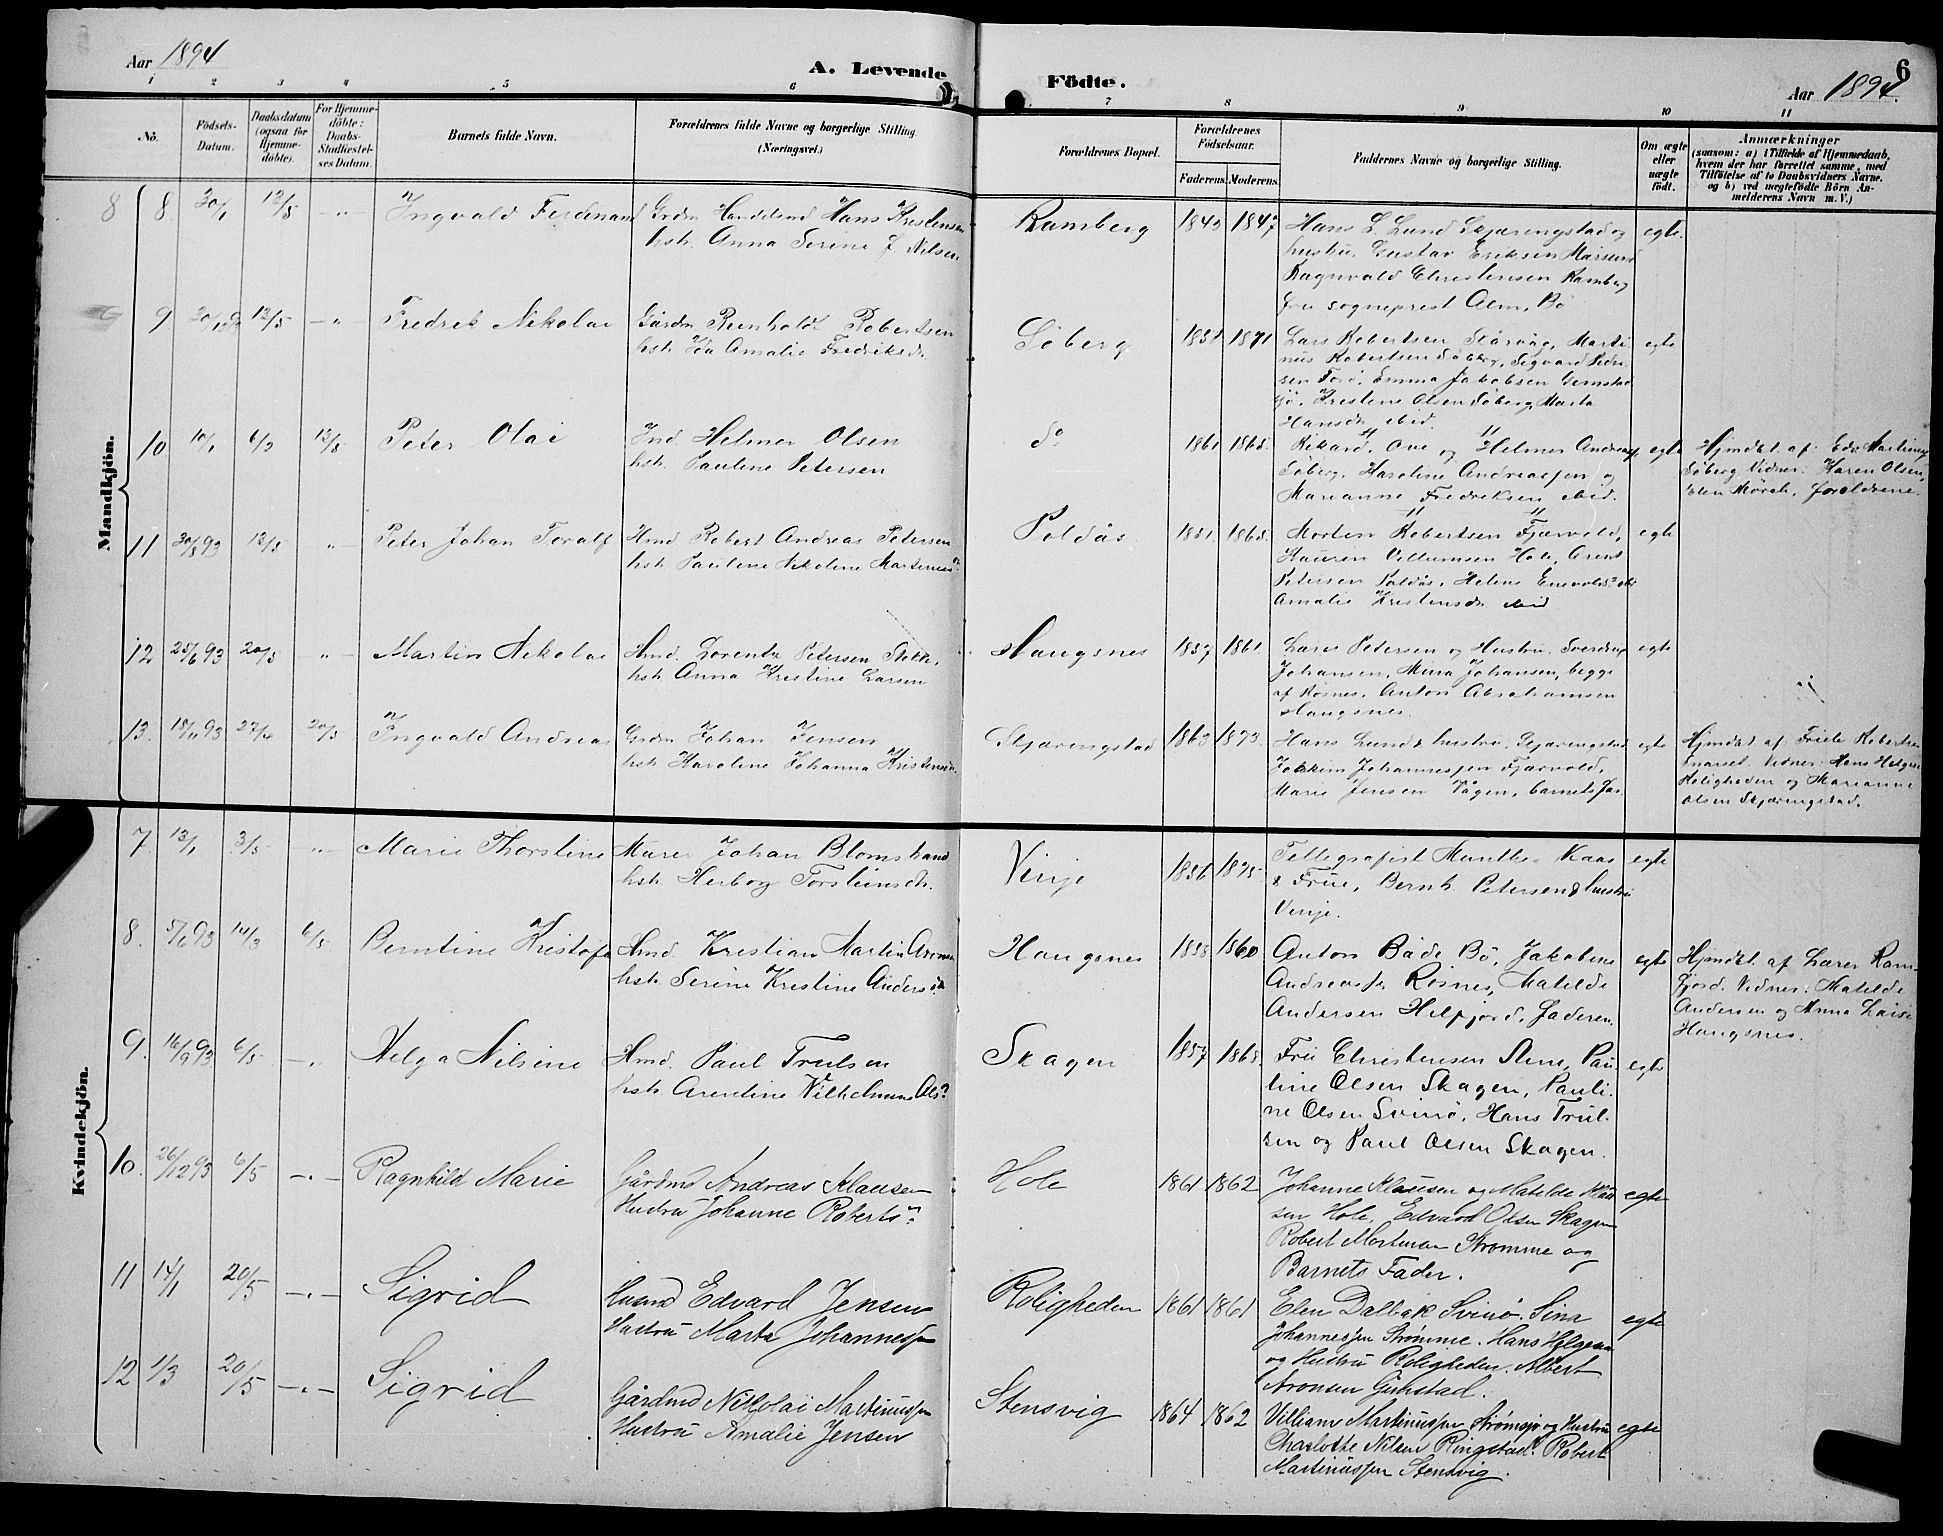 Aar 1894
A. Levende Födte.
Aar 1894.
6
1 2 3 4 5 6 7 8 9 10 11
No.
Födsels-Datum.
Daabsdatum (ogsaa for Hjemmedöbte).
For Hjemmedöbte: Daabs-Stadfæstelses Datum.
Barnets fulde Navn.
Forældrenes fulde Navne og borgerlige Stilling.
(Næringsvei.)
Forældrenes Bopæl.
Forældrenes Födselsaar.
Faderens. Moderens.
Faddernes Navne og borgerlige Stilling.
Om ægte eller uægte födt.
Anmærkninger
(saasom: a) i Tilfælde af Hjemmedaab,
hvem der har forrettet samme, med
Tilföielse af to Daabsvidners Navne.
og b) ved uægtefödte Börn Anmelderens Navn m. V.)
Mandkjön.
8 8 30/1 12/5 -"- Ingvald Ferdinand
Hans Kristensen
hstr. Anna Serine J. Nilsen
Ramberg 1847
Hans L. Lund Skjæringstad og
hustru. Gustav Eriksen
Ragnvald Christensen Ramberg
fru sogneprest Alm, Bö
egte.
9 9 12/5 -"- Fredrik Nikolai
Gårdm Reinholdt Robertsen
hstr. Ida Amalie Fredriksdr.
Söberg 1871
Lars Robertsen Marti-
nus Robertsen Söberg, Sigvard Peder-
sen Emma Jakobsen
Kristine Olsen Söberg, Marta
Hansdr. ibid.
egte
10 10/1 12/5 Peter Olai
Ind. Helmer Olsen
hstr. Pauline Petersen
do 1861 1868.
Rikard, Ove og Helmer
Söberg, Haroline Andreassen og
Marianne Fredriksen ibid.
egte
Hjmdöt. af: Edv. Martinus
Söberg Vidner: Karen Olsen,
forældrene.
11 93 12/5 " Peter Johan Toralf
Hmd Robert Andreas Petersen
hstr. Pauline Nikoline
Poldås 1851 1868.
Morten Robertsen Fjærvold,
Villumsen Hole, Arent
Petersen Poldås, Helene
Amalie Kristensdr. ibid
egte
12 25/6 93 20/5 " Martin Nikolai
Hmd. Lorentz Petersen
hstr. Anna Kristine Larsen
Haugsnes 1857 1861
Lars Petersen og Hustru. Sverdrup
Johansen, Johansen, begge
af Rösnes. Anton Abrahamsen
Haugsnes.
egte
13. 18/11 93 20/5 Ingvald Andreas
Grdm Johan Jensen
hstr. Karoline Johanna Kristensen.
Skjæringstad 1863 1873.
Hans Lund & hustru, Skjæringstad
Joakim Johannessen Fjærvold,
Marie Jensen Vågen, barnets far.
egte
Hjmdöt af: Robertsen
Vidner: Hans Helgesen
Roligheden og Marianne
Olsen Skjæringstad.
Kvindekjön.
7 13/1 3/5 -"- Marie Thorstine
Murer Johan Blomstrand
hstr. Herborg Torsteinsdr.
Vinje 1856 1875
Tellegrafist Munthe-Kaas
& Frue, Bernh. Petersen & hustru
Vinje.
egte
8. 5/6 93 14/3 6/5 Berntine Kristofa
Hmd. Kristian Martin Aronsen
hstr. Serine Kristine
Haugsnes 1858 1860
Anton Både Bö, Jakobine
Andreassen Rösnes, Matilde
Andersen Helfjord, faderen.
egte
Hjmdöt. af Lærer Ram-
fjord. Vidner: Matilde
Andersen og Anna
Haugsnes.
9. 16/9 93 6/5 -"- Helga Nilsine
Hmd. Paul Trulsen
hstr. Arentine Vilhelmine
Skagen 1857 1868.
Fru Christensen Stene, Pau-
line Olsen Skagen, Pauli-
ne Olsen Svinö, Hans Trul-
sen og Paul Olsen Skagen.
egte
10. 26/12 93 6/5 -"- Ragnhild Marie
Gårdmd Andreas Klausen
Hustru Johanne
Hole 1861 1862
Johanne Klausen og Matilde Klau-
sen Hole, Edvard Olsen Skagen
Robert Mortensen Strömme og
Barnets Fader.
egte
11 14/1 20/5 -"- Sigrid
Husmd Edvard Jensen
Hustru Marta Johannessen
Roligheden 1861 1861
Elen Dalbak Svinö. Sina
Johannessen Strömme. Hans Helgesen
og Hustru Roligheden. Albert
Aronsen
egte
12 1/3 20/5 -"- Sigrid
Gårdmd Nikolai Martinussen
Hustru Amalie Jensen
Stensvig 1864 1862
Villiam Martinussen og Hustru
Charlotte Nilsen Ringstad. Robert
Martinussen Stensvig.
egte